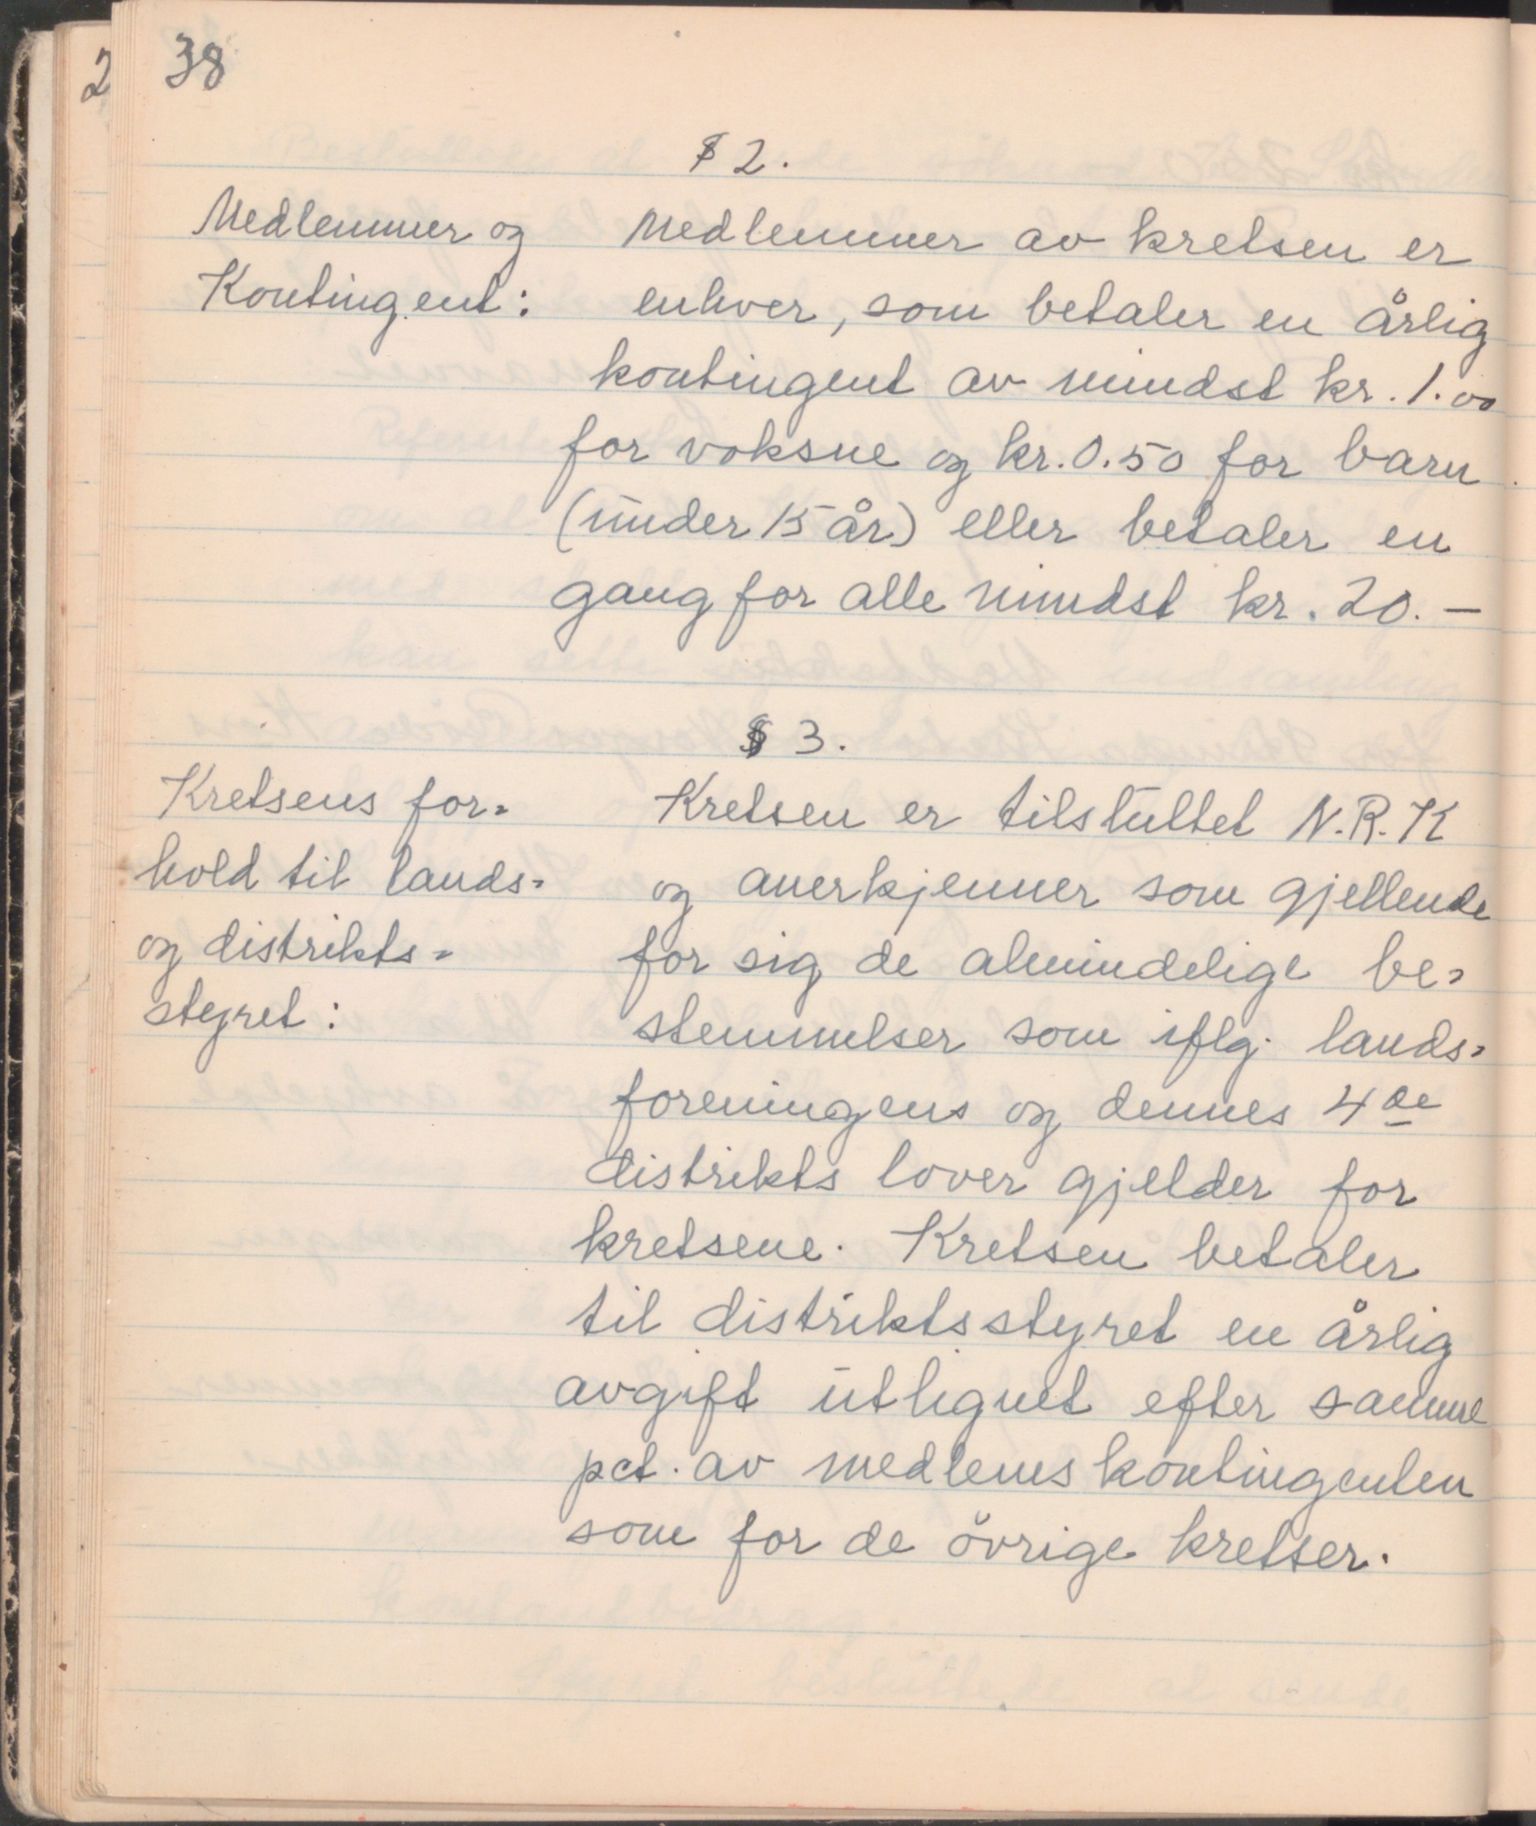 2
38
§ 2.
Medlemmer og
Kontingent:
Medlemmer av kretsen er
enhver, som betaler en årlig
kontingent av mindst kr. 1.00
for voksne og kr. 0.50 for barn
(under 15 år) eller betaler en
gang for alle mindst kr. 20. –
§ 3.
Kretsens for=
hold til lands=
og distrikts=
styret:
Kretsen er tilsluttet N.R.K
og anerkjenner som gjellende
for sig de almindelige be=
stemmelser som iflg. lands=
foreningens og dennes 4de
distrikts lover gjelder for
kretsene. Kretsen betaler
til distriktsstyret en årlig
avgift utlignet efter samme
pct. av medlemskontingenten
som for de övrige kretser.